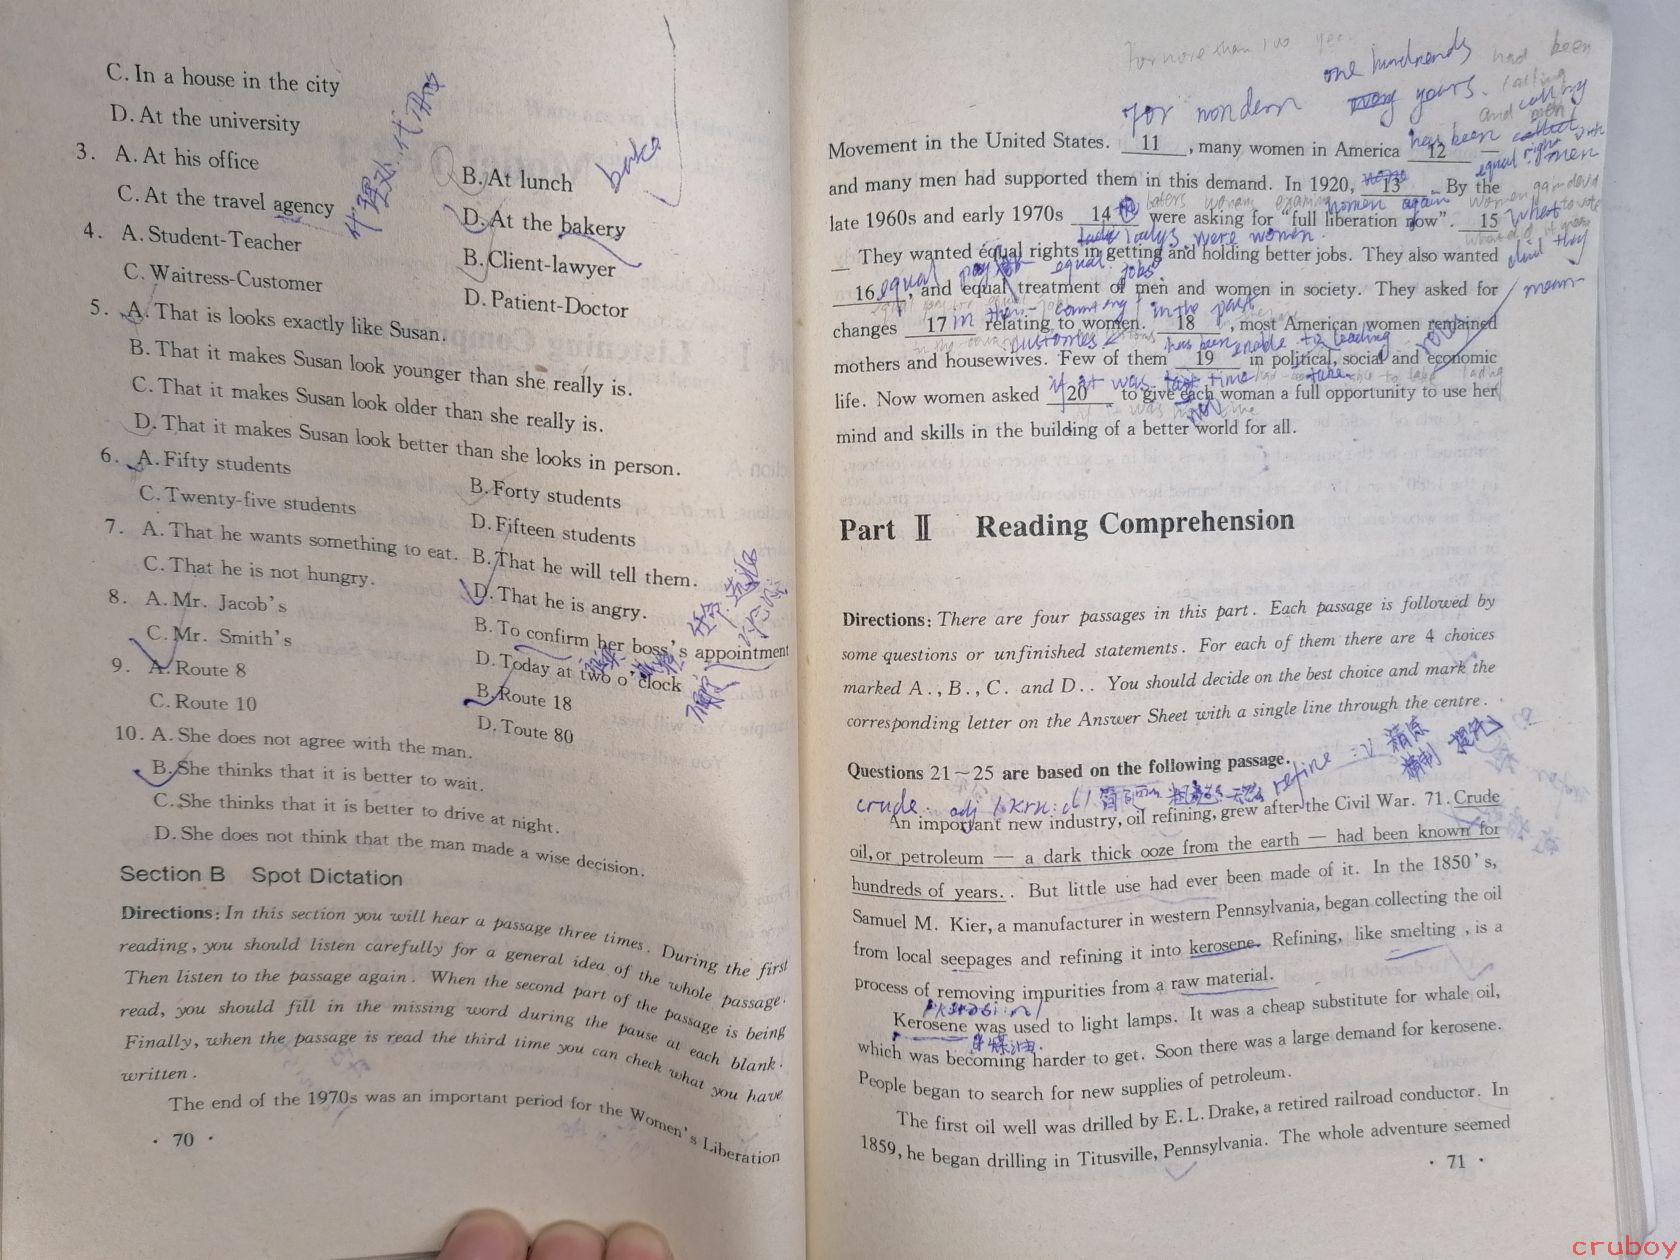 C. In a house in the city
D. At the university
3. A. At his office
B. At lunch
C. At the travel agency
D. At the bakery
4. A. Student-Teacher
B. Client-lawyer
C. Waitress-Customer
D. Patient-Doctor
5. A. That is looks exactly like Susan.
B. That it makes Susan look younger than she really is.
C. That it makes Susan look older than she really is.
D. That it makes Susan look better than she looks in person.
6. A. Fifty students
B. Forty students
C. Twenty-five students
D. Fifteen students
7. A. That he wants something to eat.
B. That he will tell them.
C. That he is not hungry.
D. That he is angry.
8. A. Mr. Jacob's
B. To confirm her boss's appointment
C. Mr. Smith's
D. Today at two o'clock
9. A. Route 8
B. Route 18
C. Route 10
D. Toute 80
10. A. She does not agree with the man.
B. She thinks that it is better to wait.
C. She thinks that it is better to drive at night.
D. She does not think that the man made a wise decision.
Section B Spot Dictation
Directions: In this section you will hear a passage three times. During the first
reading, you should listen carefully for a general idea of the whole passage.
Then listen to the passage again. When the second part of the passage is being
read, you should fill in the missing word during the pause at each blank.
Finally, when the passage is read the third time you can check what you have
written.
The end of the 1970s was an important period for the Women's Liberation
· 70 ·
one hundreds
had been
years.
and calling
Movement in the United States. 11 , many women in America has been 12
equal right
men
and many men had supported them in this demand. In 1920, 13 . By the
women again
late 1960s and early 1970s 14 were asking for "full liberation now". 15
ladys were women.
They wanted equal rights in getting and holding better jobs. They also wanted
did they
equal pay equal jobs
16 , and equal treatment of men and women in society. They asked for
mean
in their country in the past
changes 17 relating to women. 18 , most American women remained
customes has been enable to leading
role
mothers and housewives. Few of them 19 in political, social and economic
if it was time
take
life. Now women asked 20 to give each woman a full opportunity to use her
mind and skills in the building of a better world for all.
Part Ⅱ Reading Comprehension
Directions: There are four passages in this part. Each passage is followed by
some questions or unfinished statements. For each of them there are 4 choices
marked A., B., C. and D.. You should decide on the best choice and mark the
corresponding letter on the Answer Sheet with a single line through the centre.
Questions 21~25 are based on the following passage.
refine 精炼
精制
crude: adj
An important new industry, oil refining, grew after the Civil War. 71. Crude
oil, or petroleum — a dark thick ooze from the earth — had been known for
hundreds of years.. But little use had ever been made of it. In the 1850's,
Samuel M. Kier, a manufacturer in western Pennsylvania, began collecting the oil
from local seepages and refining it into kerosene. Refining, like smelting, is a
process of removing impurities from a raw material.
Kerosene was used to light lamps. It was a cheap substitute for whale oil,
煤油
which was becoming harder to get. Soon there was a large demand for kerosene.
People began to search for new supplies of petroleum.
The first oil well was drilled by E. L. Drake, a retired railroad conductor. In
1859, he began drilling in Titusville, Pennsylvania. The whole adventure seemed
· 71 ·
cruboy